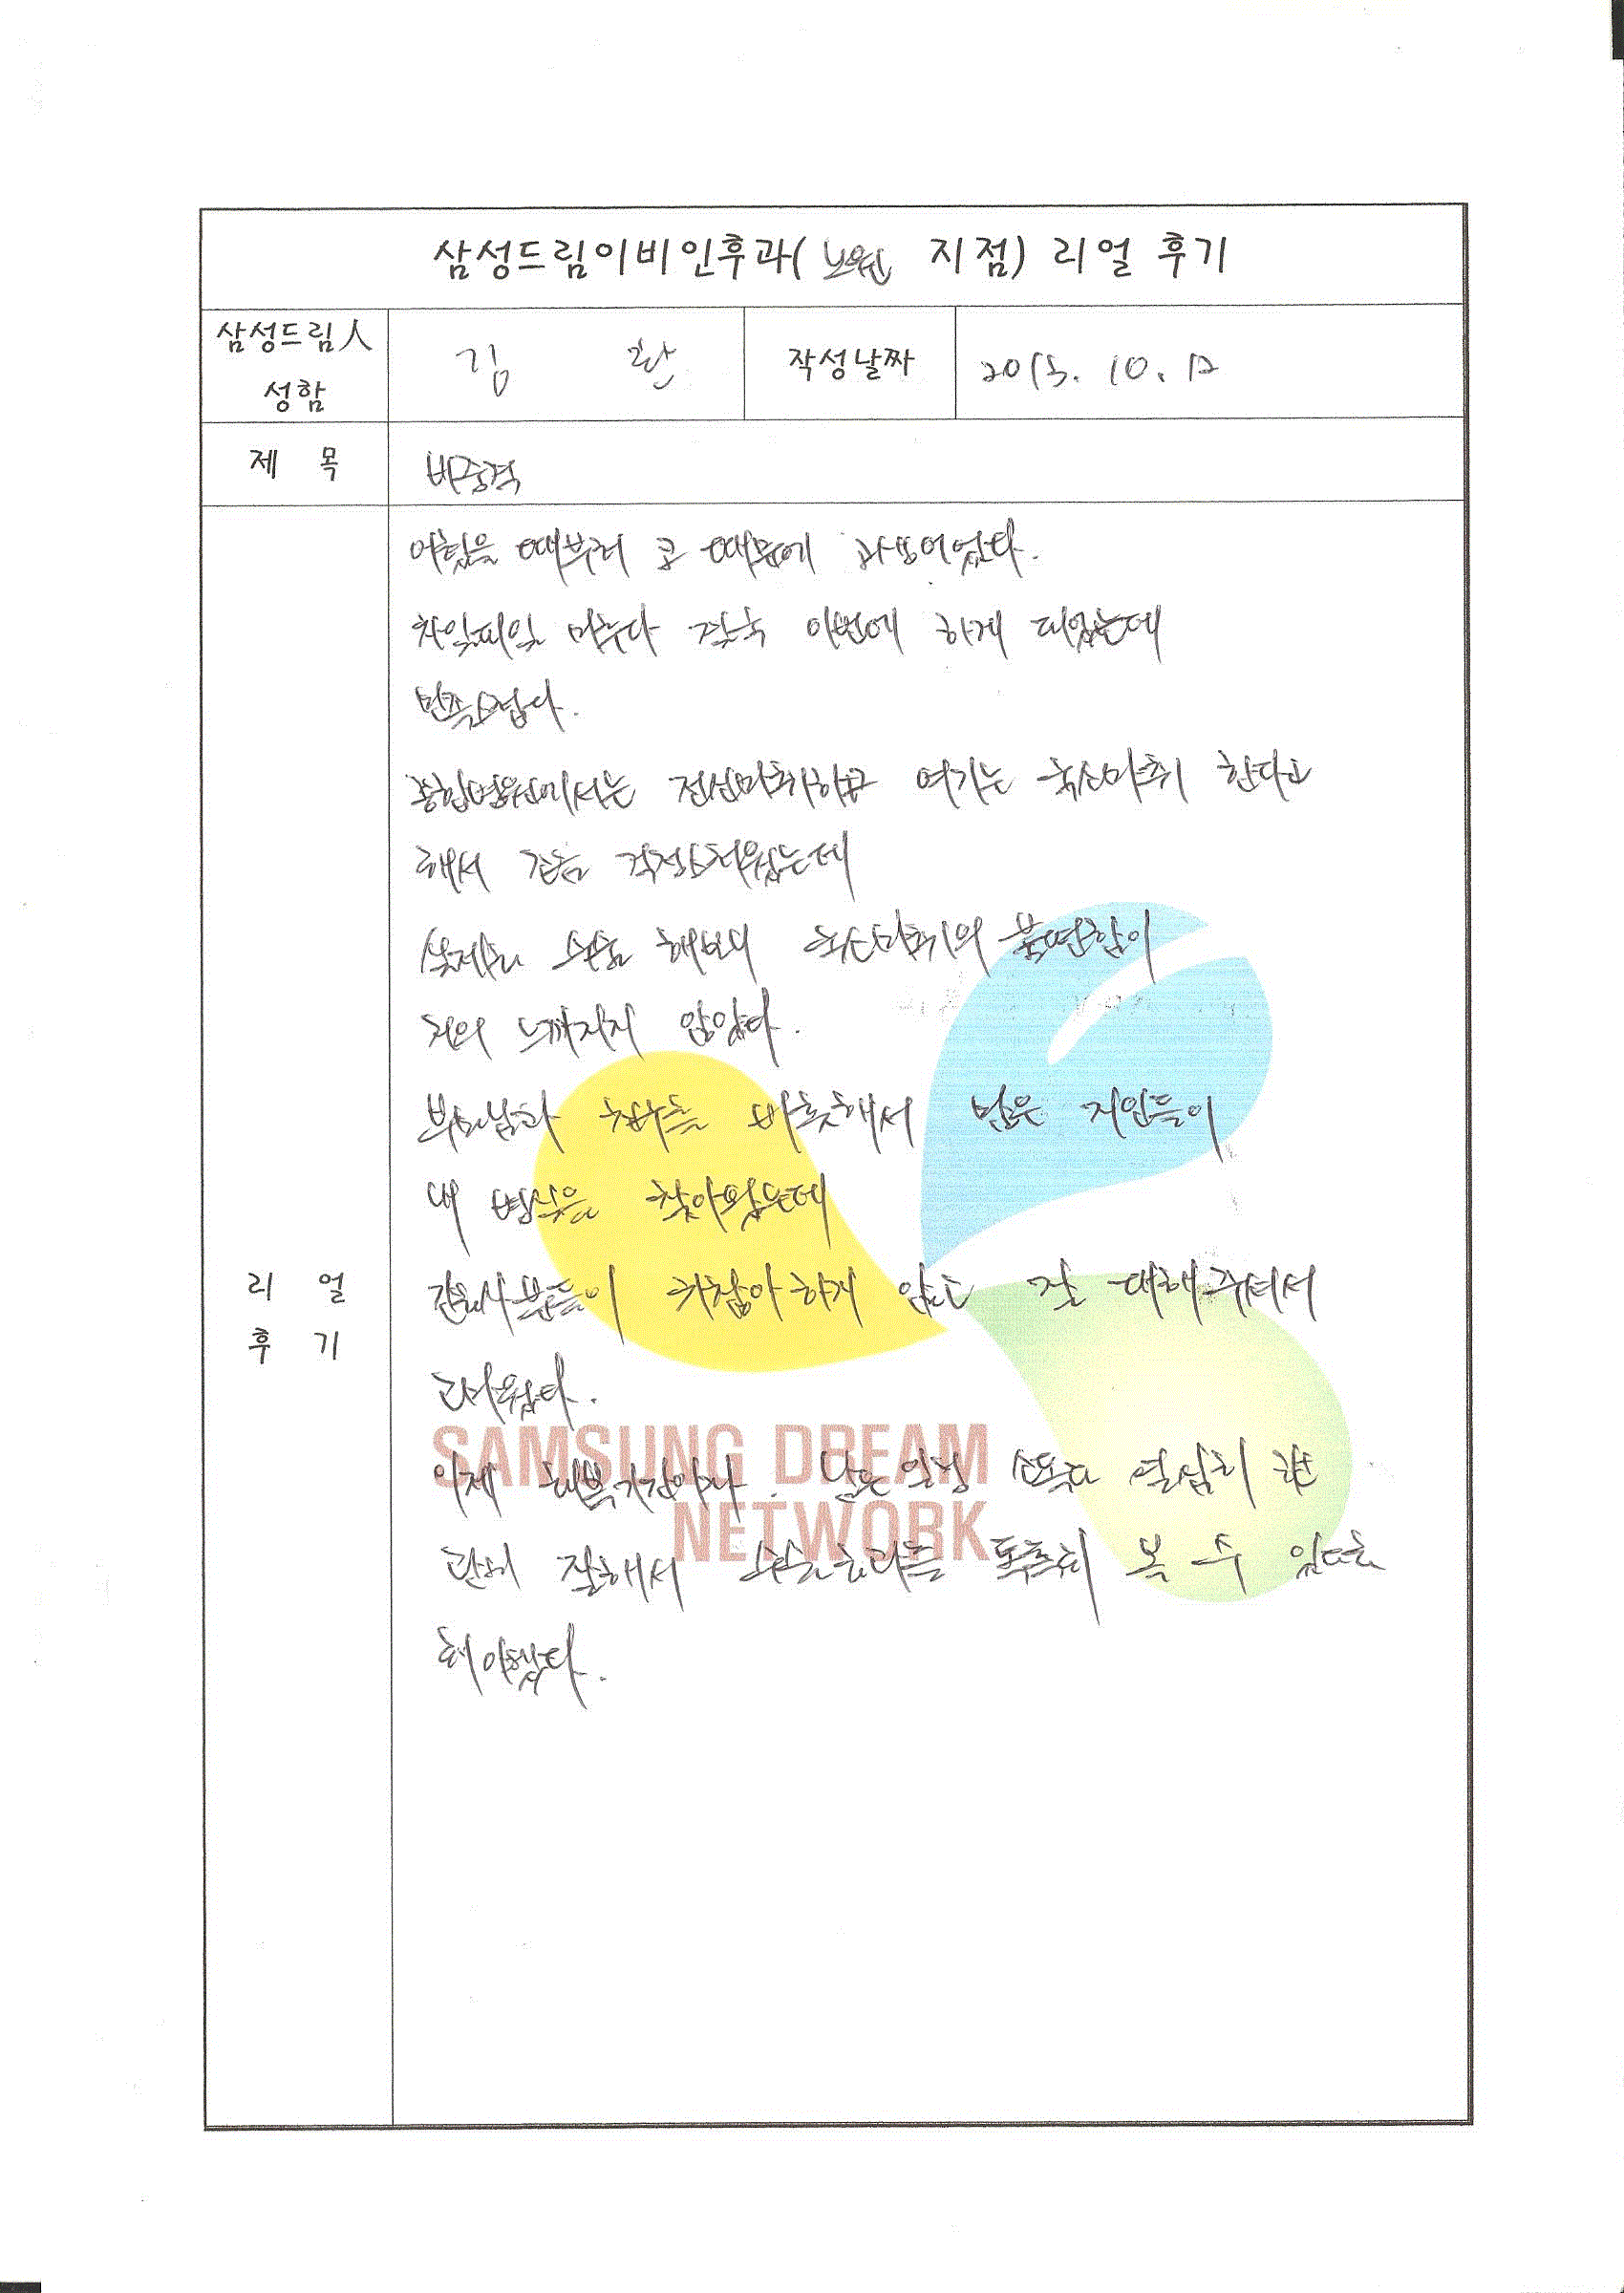 삼성드림이비인후과( 노원 지점) 리얼 후기
삼성드림人
성함
김 환
작성날짜
2015. 10. 12
제 목
비중격
어렸을 때부터 코 때문에 과로워었다.
차일피일 미루다 갈수록 이번에 하게 되었는데
만족스럽다.
종합병원에서는 전신마취하고 여기는 국소마취 한다고
해서 조금 걱정스러웠는데
실제로 수술 해보니 국소마취의 불편함이
거의 느껴지지 않았다.
부모님과 친구들 비롯해서 많은 지인들이
내 병실을 찾아왔는데
간호사분들이 귀찮아하지 않고 잘 대해주셔서
고마웠다.
이제 회복기간이다. 남은 일정 소독과 열심히 코
관리 잘해서 수술효과를 톡톡히 볼 수 있도록
해야겠다.
리 얼
후 기
SAMSUNG DREAM
NETWORK